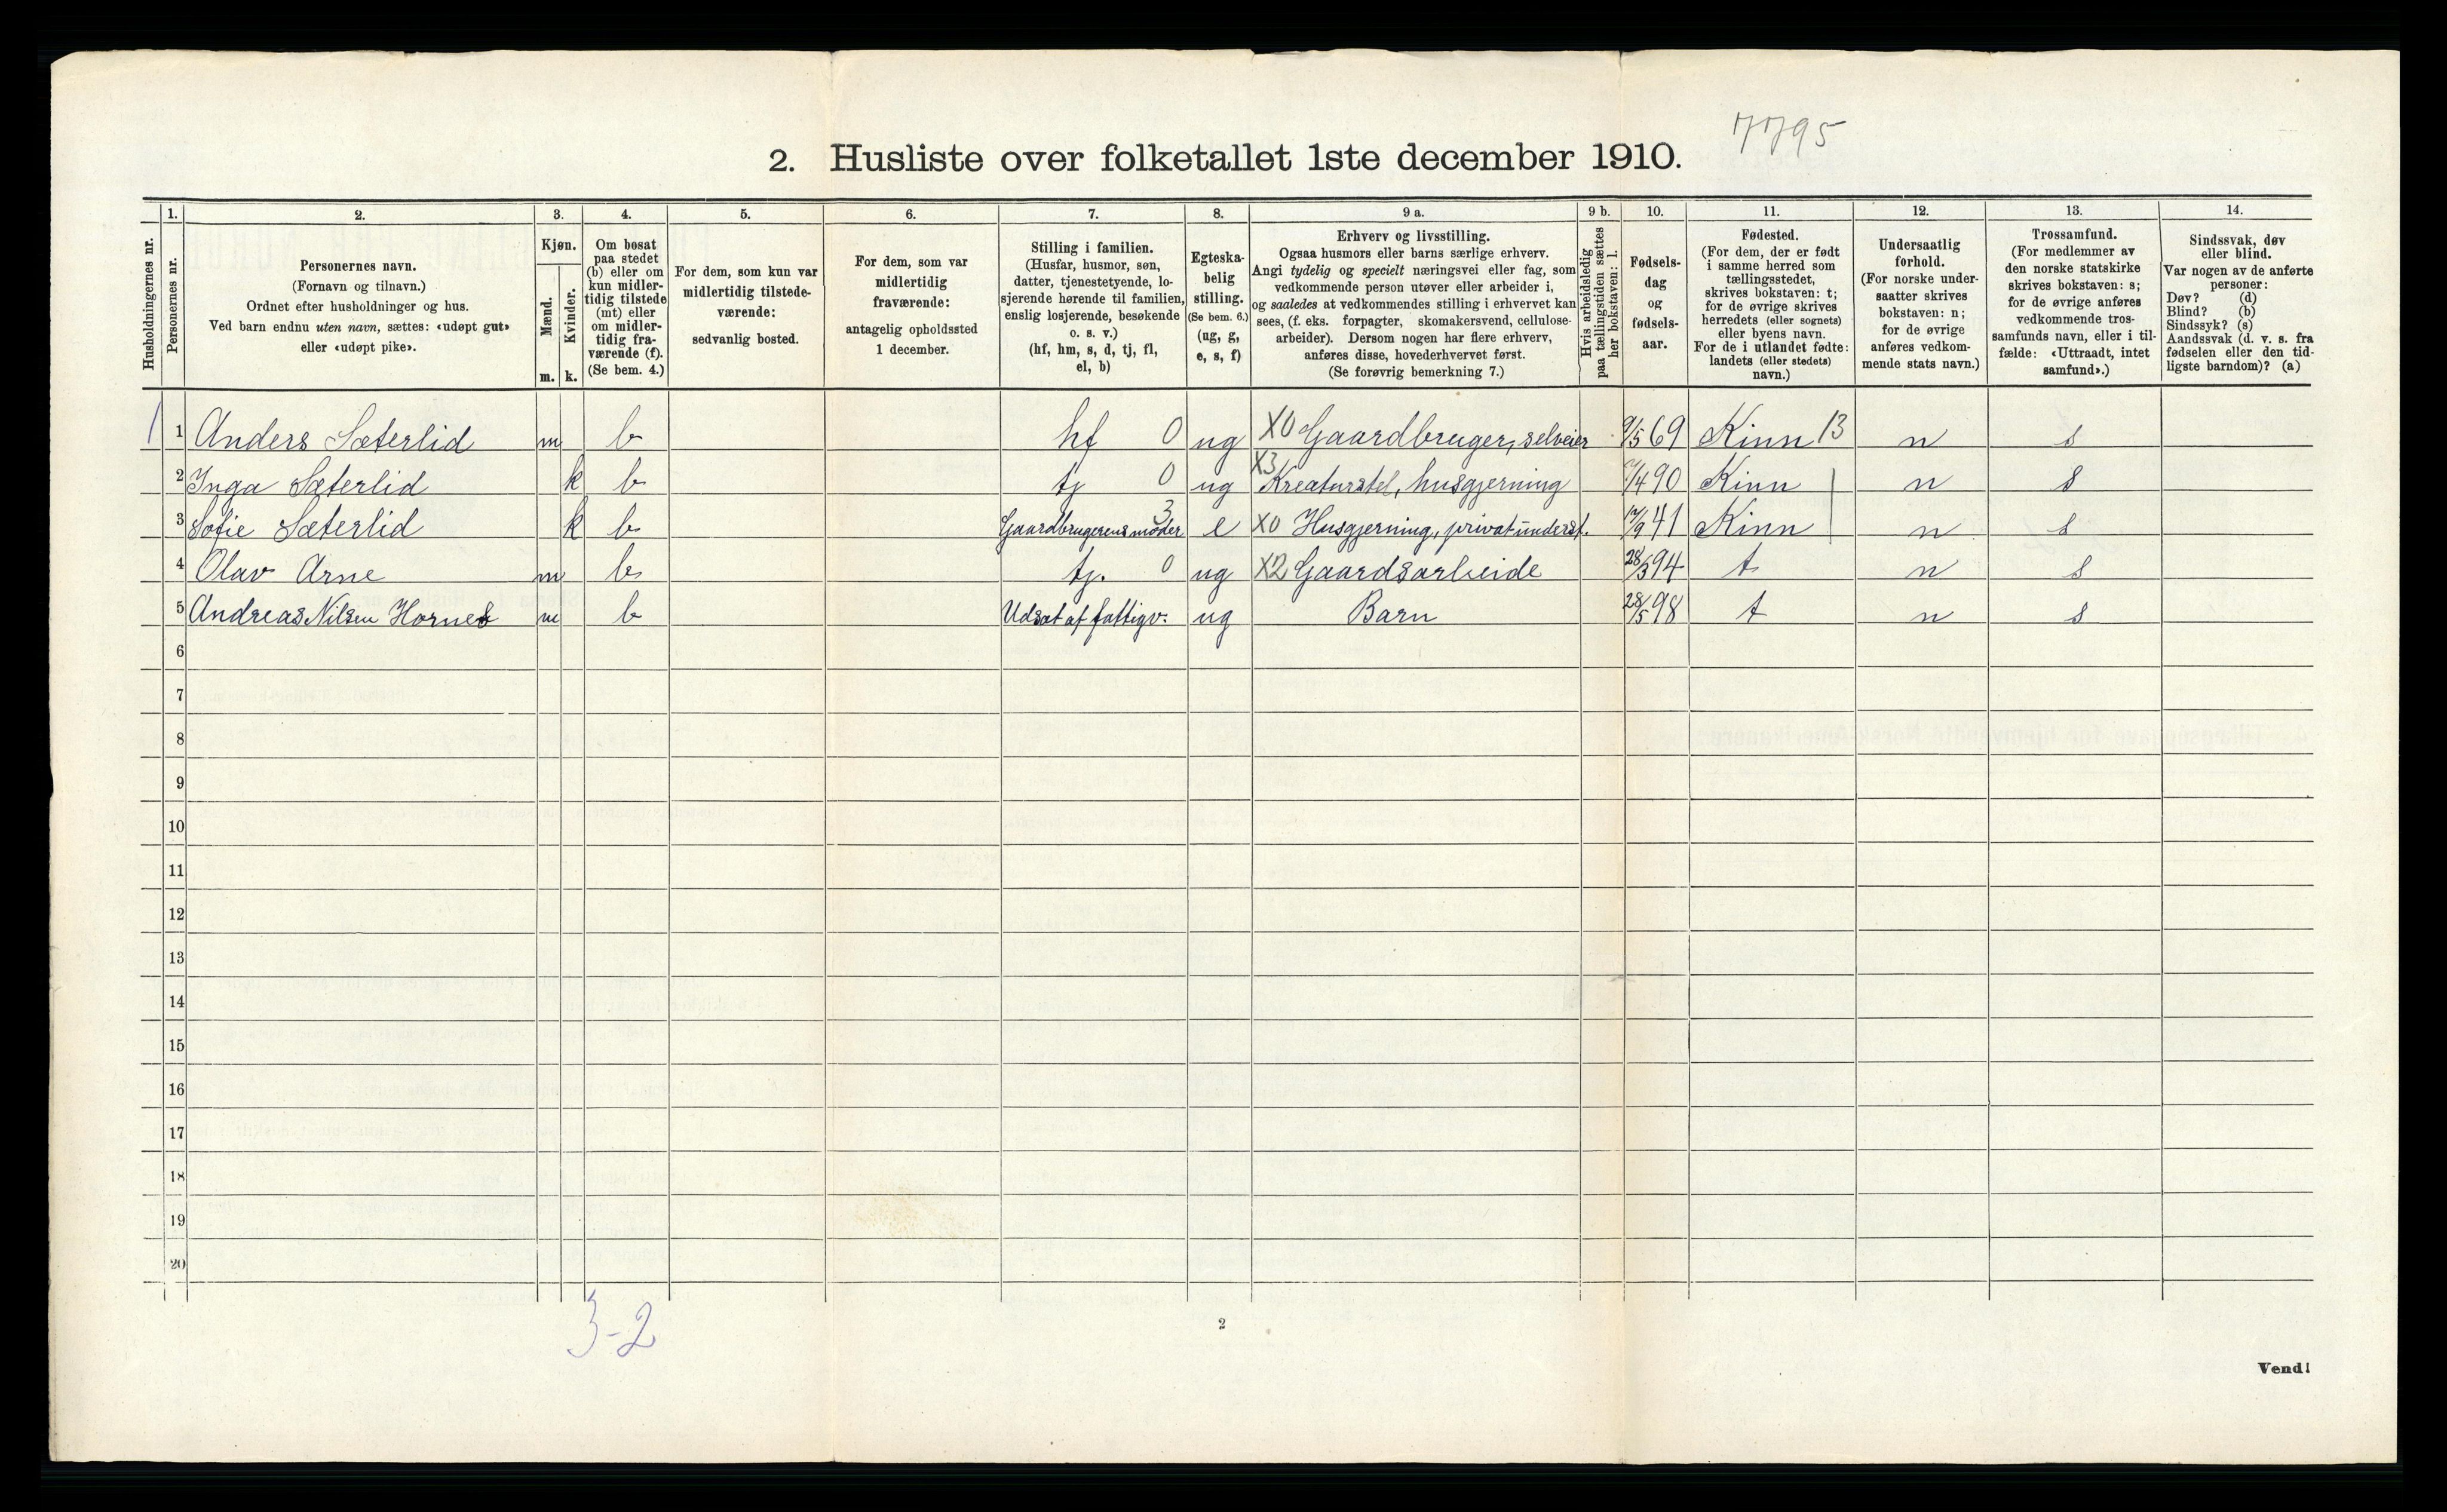 7795
2. Husliste over folketallet 1ste december 1910.
Husholdningernes nr.
1. Personernes nr.
2. Personernes navn.
(Fornavn og tilnavn.)
Ordnet efter husholdninger og hus.
Ved barn endnu uten navn, sættes: «udøpt gut»
eller «udøpt pike».
3. Kjøn.
Mænd. m.
Kvinder. k.
4. Om bosat
paa stedet
(b) eller om
kun midler-
tidig tilstede
(mt) eller
om midler-
tidig fra-
værende (f).
(Se bem. 4.)
5. For dem, som kun var
midlertidig tilstede-
værende:
sedvanlig bosted.
6. For dem, som var
midlertidig
fraværende:
antagelig opholdssted
1 december.
7. Stilling i familien.
(Husfar, husmor, søn,
datter, tjenestetyende, lo-
sjerende hørende til familien,
enslig losjerende, besøkende
o. s. v.)
(hf, hm, s, d, tj, fl,
el, b)
8. Egteska-
belig
stilling.
(Se bem. 6.)
(ug, g,
e, s, f)
9 a. Erhverv og livsstilling.
Ogsaa husmors eller barns særlige erhverv.
Angi tydelig og specielt næringsvei eller fag, som
vedkommende person utøver eller arbeider i,
og saaledes at vedkommendes stilling i erhvervet kan
sees, (f. eks. forpagter, skomakersvend, cellulose-
arbeider). Dersom nogen har flere erhverv,
anføres disse, hovederhvervet først.
(Se forøvrig bemerkning 7.)
9 b. Hvis arbeidsledig
paa tællingstiden sættes
her bokstaven: l.
10. Fødsels-
dag
og
fødsels-
aar.
11. Fødested.
(For dem, der er født
i samme herred som
tællingsstedet,
skrives bokstaven: t;
for de øvrige skrives
herredets (eller sognets)
eller byens navn.
For de i utlandet fødte:
landets (eller stedets)
navn.)
12. Undersaatlig
forhold.
(For norske under-
saatter skrives
bokstaven: n;
for de øvrige
anføres vedkom-
mende stats navn.)
13. Trossamfund.
(For medlemmer av
den norske statskirke
skrives bokstaven: s;
for de øvrige anføres
vedkommende tros-
samfunds navn, eller i til-
fælde: «Uttraadt, intet
samfund».)
14. Sindssvak, døv
eller blind.
Var nogen av de anførte
personer:
Døv? (d)
Blind? (b)
Sindssyk? (s)
Aandssvak (d. v. s. fra
fødselen eller den tid-
ligste barndom)? (a)
1 1 Anders Sæterlid m b hf 0 ug X0 Gaardbruger, selveier 9/5 69 Kinn 13 n s
2 Inga Sæterlid k b tj 0 ug X3 Kreaturstel, husgjerning /4 90 Kinn n s
3 Sofie Sæterlid k b Gaardbrugerens moder 3 e X0 Husgjerning, privat underst. 17/9 41 Kinn n s
4 Olav Arne m b tj. 0 ug X2 Gaardsarbeide 28/3 94 t n s
5 Andreas Nilsen Hornes m b Udsat af fattigv. ug Barn 28/5 98 t n s
6
7
8
9
10
11
12
13
14
15
16
17
18
19
20
3-2
2
Vend!